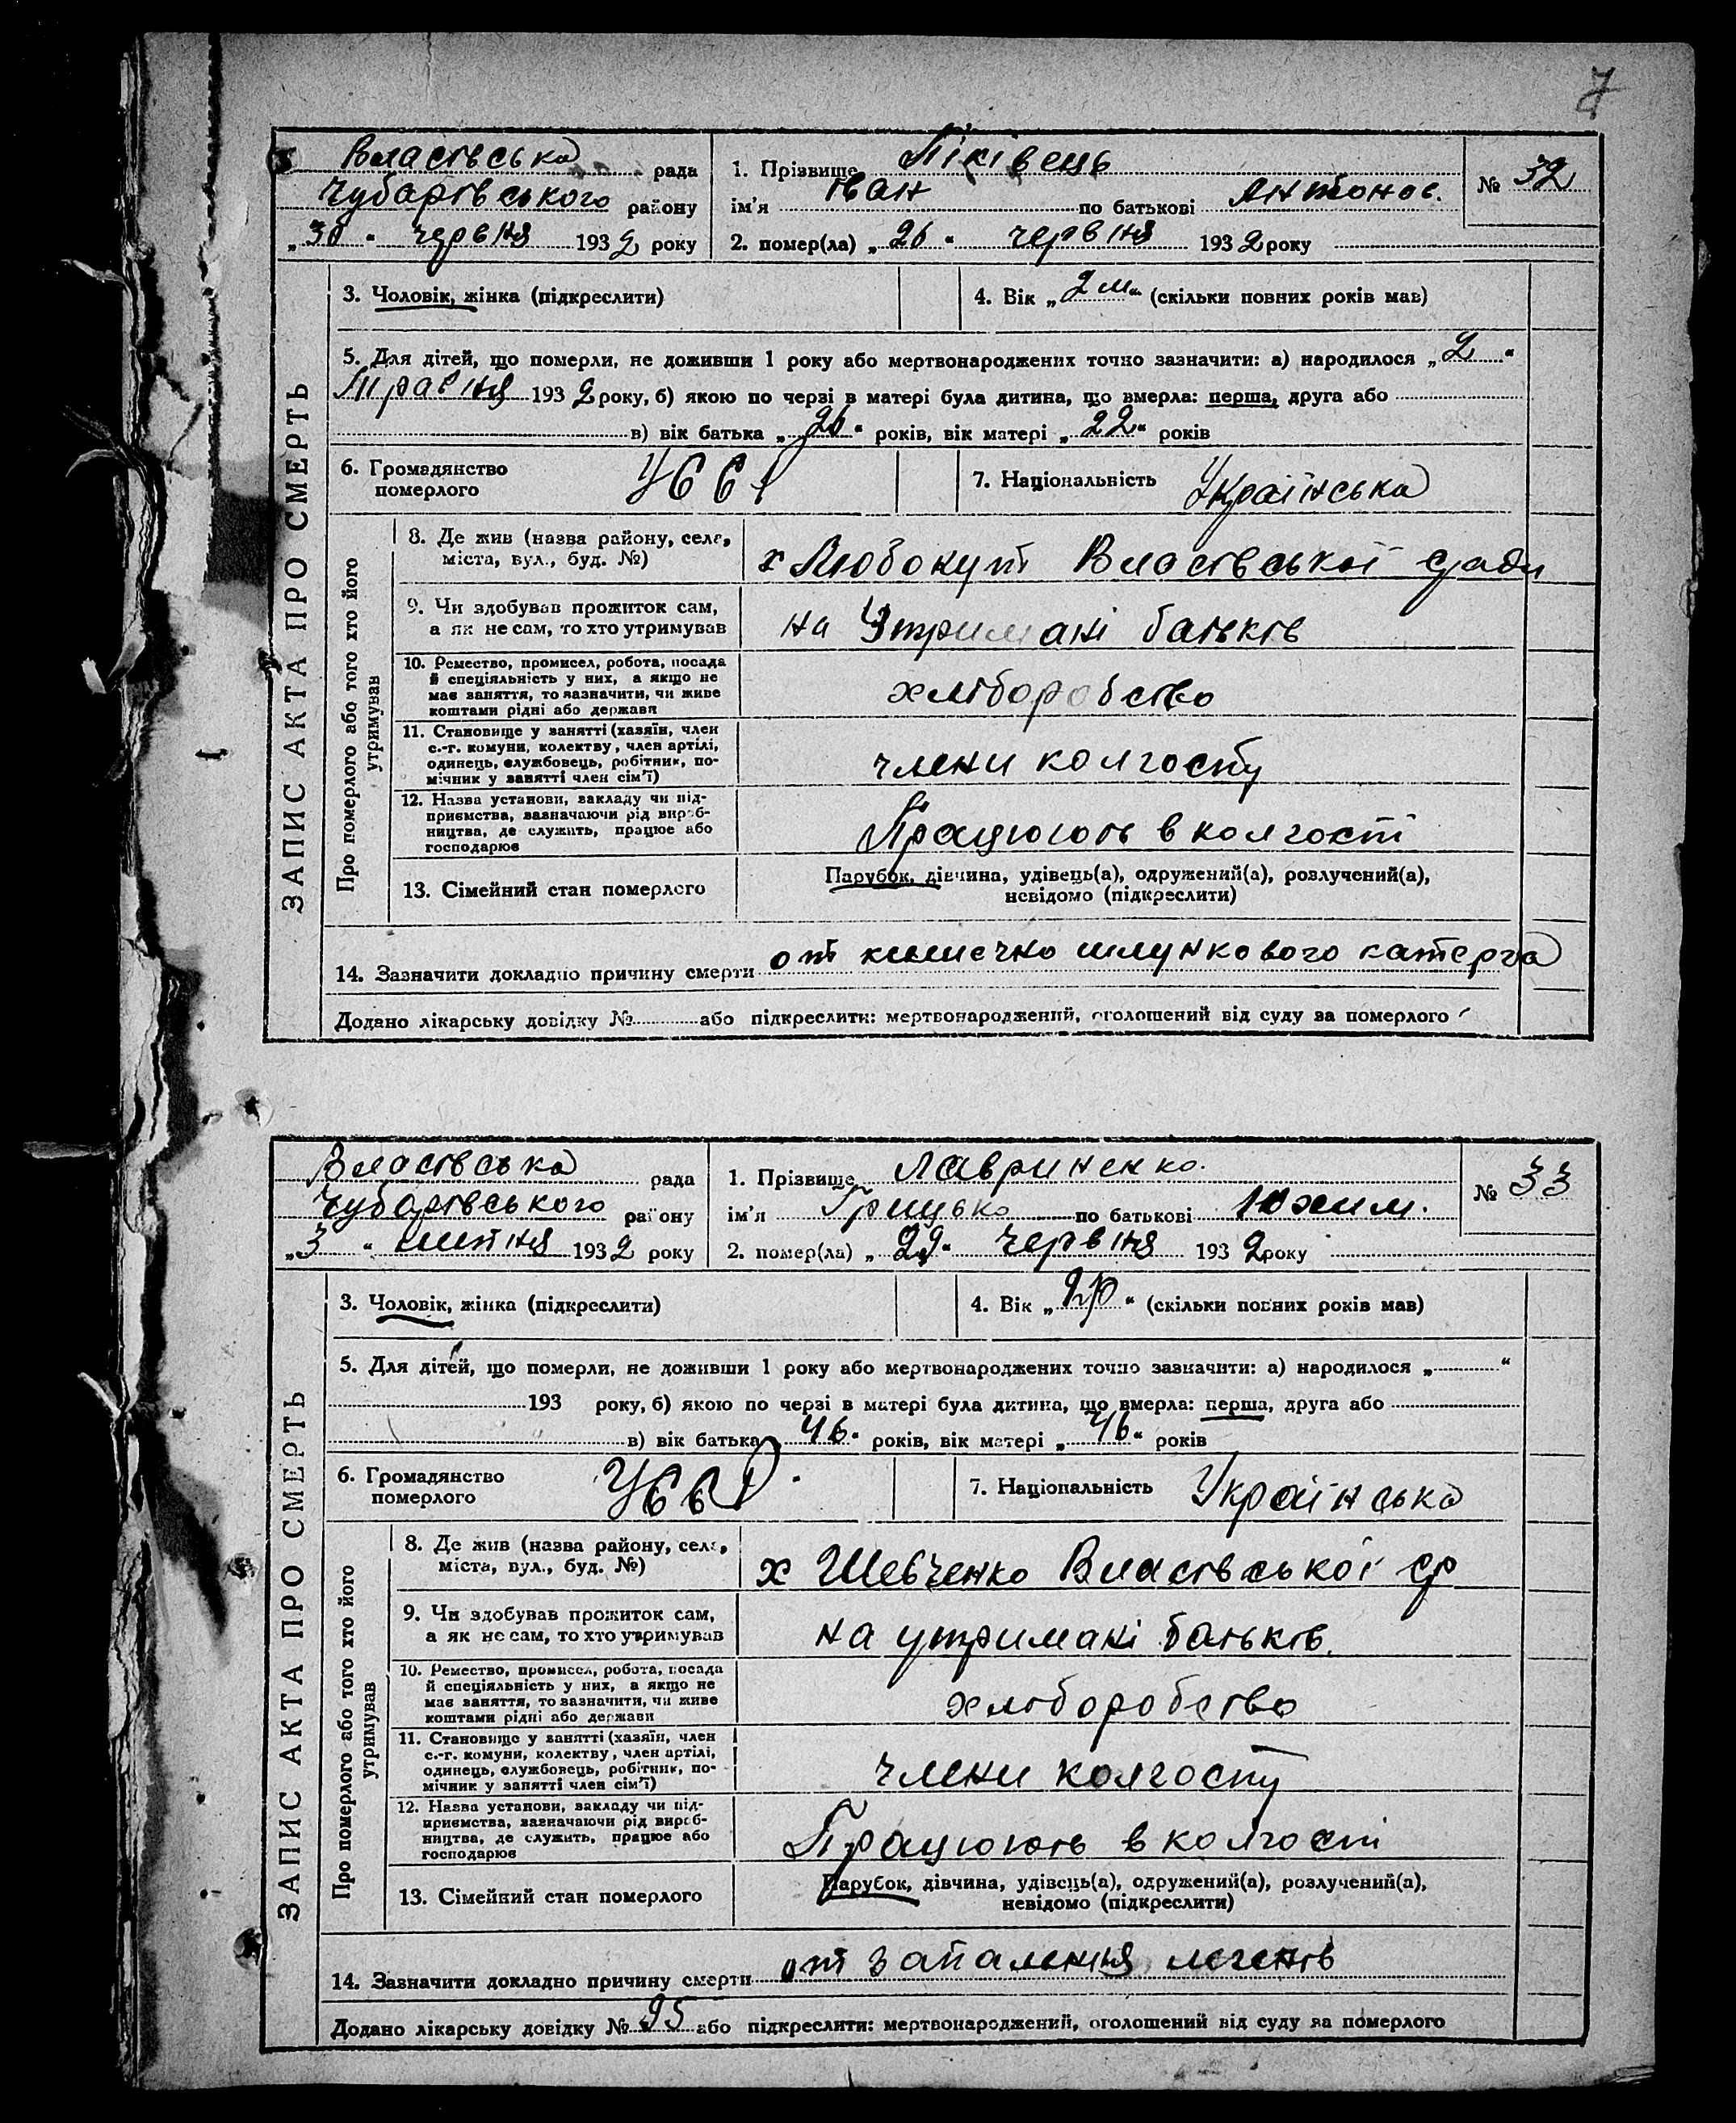 7
Власівська рада
1. Прізвище Піківець
№ 32
Чубарівського району
ім'я Іван по батькові Антонов.
„30" червня 1932 року
2. помер(ла) „26" червня 1932 року
ЗАПИС АКТА ПРО СМЕРТЬ
3. Чоловік, жінка (підкреслити)
4. Вік „2 м" (скільки повних років мав)
5. Для дітей, що померли, не доживши 1 року або мертвонароджених точно зазначити: а) народилося „2"
Травня 1932 року, б) якою по черзі в матері була дитина, що вмерла: перша, друга або
в) вік батька „26" років, вік матері „22" років
6. Громадянство
померлого
УССР
7. Національність Українська
Про померлого або того хто його
утримував
8. Де жив (назва району, села,
міста, вул., буд. №)
х Любокут Власівської сради
9. Чи здобував прожиток сам,
а як не сам, то хто утримував
на Утримані батьків
10. Ремество, промисел, робота, посада
й спеціяльність у них, а якщо не
має заняття, то зазначити, чи живе
коштами рідні або держави
хліборобство
11. Становище у занятті (хазяїн, член
с.-г. комуни, колектву, член артілі,
одинець, службовець, робітник, по-
мічник у занятті член сім'ї)
члени колгоспу
12. Назва установи, закладу чи під-
приємства, зазначаючи рід вироб-
ництва, де служить, працює або
господарює
Працюють в колгоспі
13. Сімейний стан померлого
Парубок, дівчина, удівець(а), одружений(а), розлучений(а),
невідомо (підкреслити)
14. Зазначити докладно причину смерти от кишечно шлункового катерра
Додано лікарську довідку № або підкреслити: мертвонароджений, оголошений від суду за померлого
Власівська рада
1. Прізвище Лавриненко.
№ 33
Чубарівського району
ім'я Грицько по батькові Юхим.
„3" липня 1932 року
2. помер(ла) „29" червня 1932 року
ЗАПИС АКТА ПРО СМЕРТЬ
3. Чоловік, жінка (підкреслити)
4. Вік „2р" (скільки повних років мав)
5. Для дітей, що померли, не доживши 1 року або мертвонароджених точно зазначити: а) народилося „ "
193 року, б) якою по черзі в матері була дитина, що вмерла: перша, друга або
в) вік батька „46" років, вік матері „46" років
6. Громадянство
померлого
УССР.
7. Національність Українська
Про померлого або того хто його
утримував
8. Де жив (назва району, села,
міста, вул., буд. №)
х Шевченко Власівської ср
9. Чи здобував прожиток сам,
а як не сам, то хто утримував
на утримані батьків.
10. Ремество, промисел, робота, посада
й спеціяльність у них, а якщо не
має заняття, то зазначити, чи живе
коштами рідні або держави
хліборобство
11. Становище у занятті (хазяїн, член
с.-г. комуни, колектву, член артілі,
одинець, службовець, робітник, по-
мічник у занятті член сім'ї)
члени колгоспу
12. Назва установи, закладу чи під-
приємства, зазначаючи рід вироб-
ництва, де служить, працює або
господарює
Працюють в колгоспі
13. Сімейний стан померлого
Парубок, дівчина, удівець(а), одружений(а), розлучений(а),
невідомо (підкреслити)
14. Зазначити докладно причину смерти от запалення легенів
Додано лікарську довідку № 95 або підкреслити: мертвонароджений, оголошений від суду за померлого